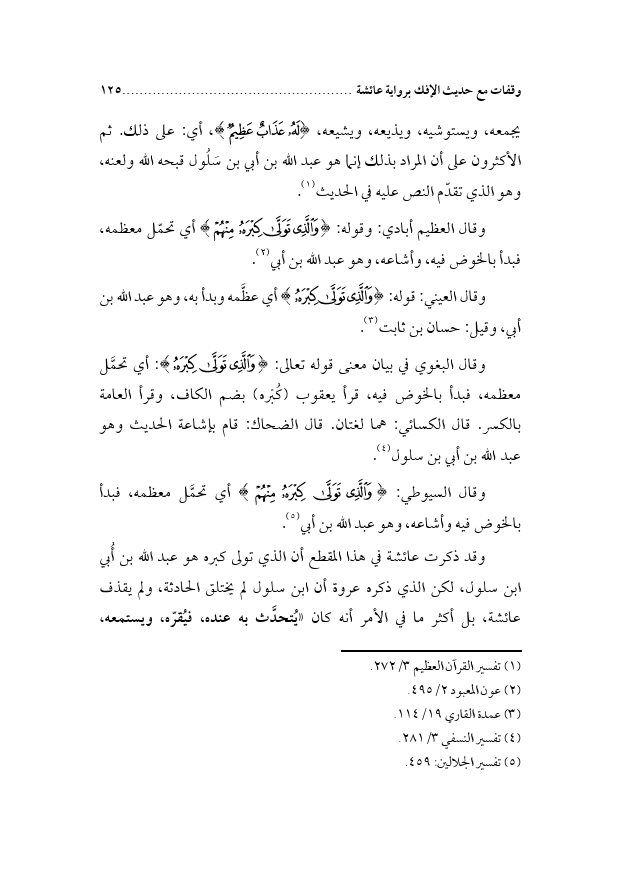 وقفات مع حديث الإفك برواية عائشة .....................................................١٢٥
يجمعه، ويستوشيه، ويذيعه، ويشيعه، ﴿لَهُۥ عَذَابٌ عَظِيمٌ﴾، أي: على ذلك. ثم
الأكثرون على أن المراد بذلك إنما هو عبد الله بن أبي بن سَلُول قبحه الله ولعنه،
وهو الذي تقدّم النص عليه في الحديث(١).
وقال العظيم أبادي: وقوله: ﴿وَٱلَّذِى تَوَلَّىٰ كِبْرَهُۥ مِنْهُمْ﴾ أي تحمّل معظمه،
فبدأ بالخوض فيه، وأشاعه، وهو عبد الله بن أبي(٢).
وقال العيني: قوله: ﴿وَٱلَّذِى تَوَلَّىٰ كِبْرَهُۥ﴾ أي عظَّمه وبدأ به، وهو عبد الله بن
أبي، وقيل: حسان بن ثابت(٣).
وقال البغوي في بيان معنى قوله تعالى: ﴿وَٱلَّذِى تَوَلَّىٰ كِبْرَهُۥ﴾: أي تحمَّل
معظمه، فبدأ بالخوض فيه، قرأ يعقوب (كُبْره) بضم الكاف، وقرأ العامة
بالكسر. قال الكسائي: هما لغتان. قال الضحاك: قام بإشاعة الحديث وهو
عبد الله بن أبي بن سلول(٤).
وقال السيوطي: ﴿وَٱلَّذِى تَوَلَّىٰ كِبْرَهُۥ مِنْهُمْ﴾ أي تحمَّل معظمه، فبدأ
بالخوض فيه وأشاعه، وهو عبد الله بن أبي(٥).
وقد ذكرت عائشة في هذا المقطع أن الذي تولى كبره هو عبد الله بن أُبي
ابن سلول، لكن الذي ذكره عروة أن ابن سلول لم يختلق الحادثة، ولم يقذف
عائشة، بل أكثر ما في الأمر أنه كان «يُتحدَّث به عنده، فيُقرّه، ويستمعه،
(١) تفسير القرآن العظيم ٣/ ٢٧٢.
(٢) عون المعبود ٢/ ٤٩٥.
(٣) عمدة القاري ١٩/ ١١٤.
(٤) تفسير النسفي ٣/ ٢٨١.
(٥) تفسير الجلالين: ٤٥٩.